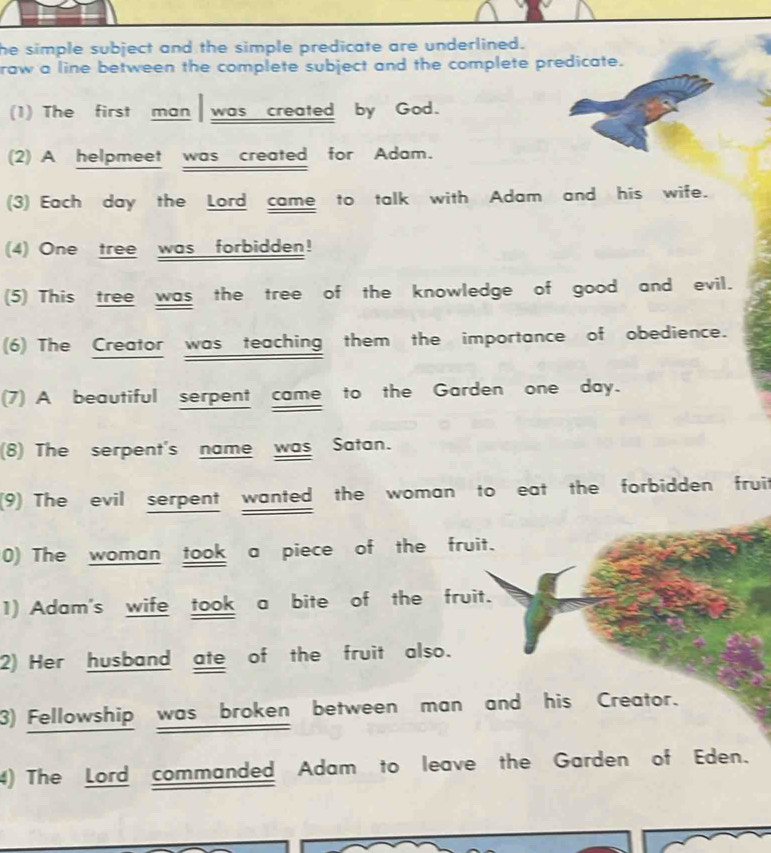 he simple subject and the simple predicate are underlined.
raw a line between the complete subject and the complete predicate.
(1) The first man | was created by God.
(2) A helpmeet was created for Adam.
(3) Each day the Lord came to talk with Adam and his wife.
(4) One tree was forbidden!
(5) This tree was the tree of the knowledge of good and evil.
(6) The Creator was teaching them the importance of obedience.
(7) A beautiful serpent came to the Garden one day.
(8) The serpent's name was Satan.
(9) The evil serpent wanted the woman to eat the forbidden fruit
0) The woman took a piece of the fruit.
1) Adam's wife took a bite of the fruit.
2) Her husband ate of the fruit also.
3) Fellowship was broken between man and his Creator.
4) The Lord commanded Adam to leave the Garden of Eden.